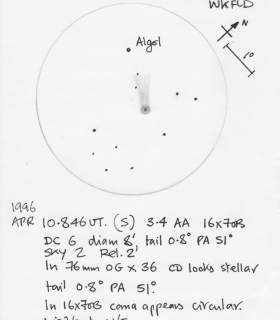 WKFCD
N
Algol
1°
1996
APR 10.846UT. (S) 3.4 AA 16x70B
DC 6 diam 8', tail 0.8° PA 51°
Sky 2 Rel. 2'
In 76mm OG x 36 CD looks stellar
tail 0.8° PA 51°.
In 16x70B coma appears circular.